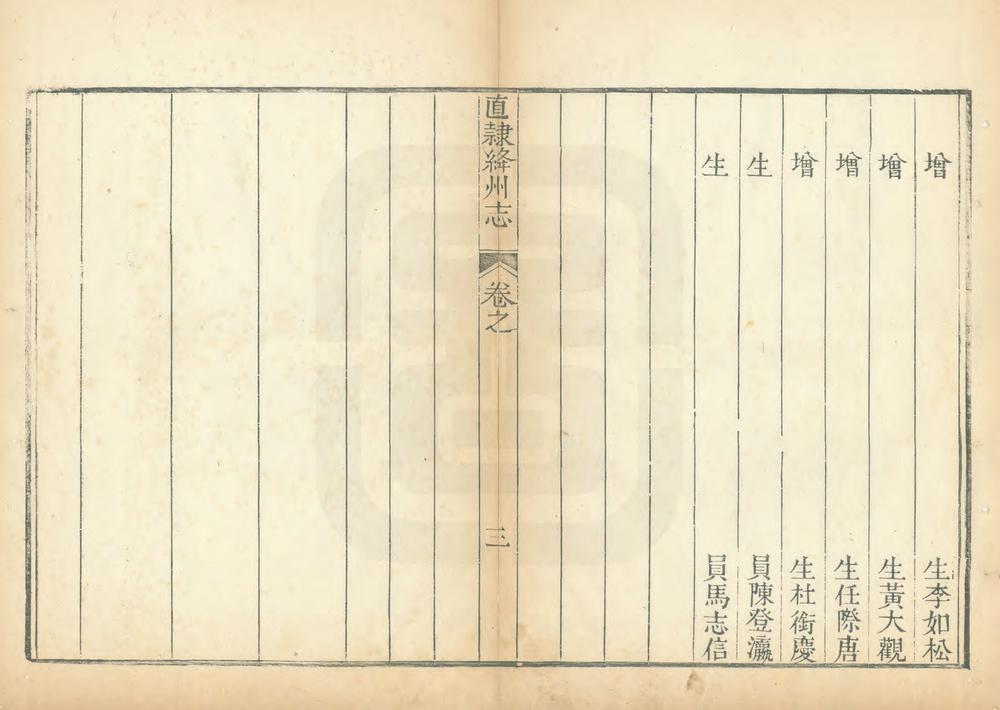 增生李如松
增生黃大觀
增生任際唐
增生杜銜慶
生員陳登瀛
生員馬志信
直隸絳州志 卷之 三